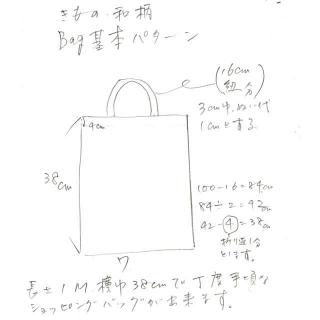 きもの・和柄
Bag基本パターン
(16cm
紐分)
3cm巾、ぬい代
1cmとする
4cm
38cm
100-16=84cm
84÷2=42cm
42-④=38cm
折り返し分
とします。
ワ
長さ1M横巾38cmで丁度手頃な
ショッピングバッグが出来ます。